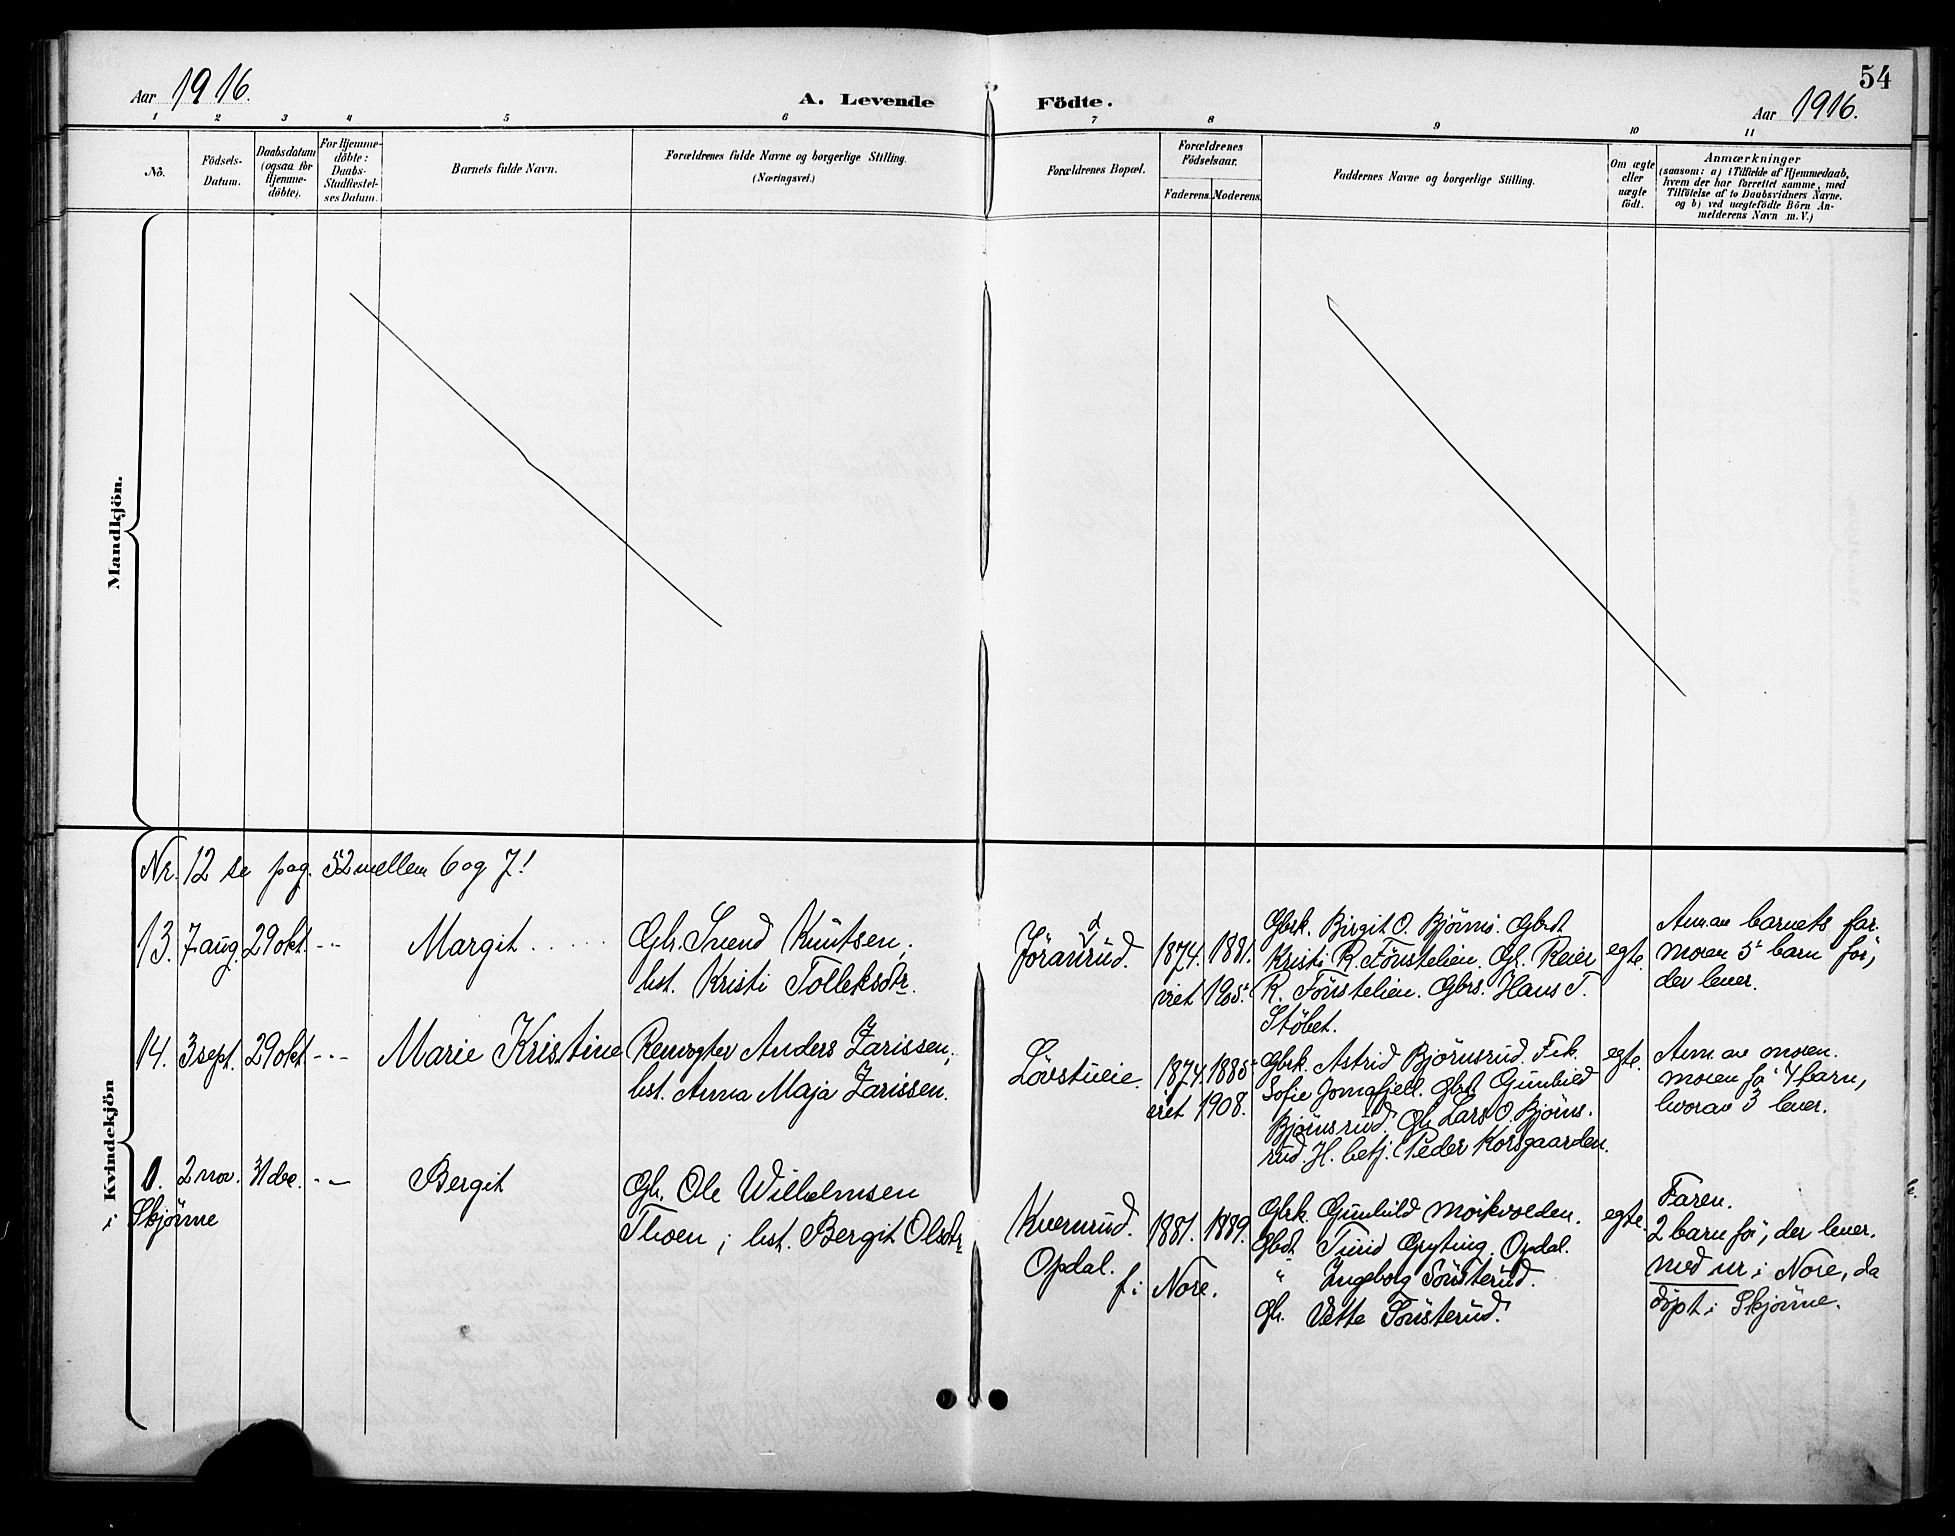 54
Aar 1916.
A. Levende Födte.
Aar 1916.
1 2 3 4 5 6 7 8 9 10 11
No.
Födsels-
Datum.
Daabsdatum
(ogsaa for
Hjemme-
döbte).
For Hjemme-
döbte:
Daabs-
Stadfæstel-
ses Datum.
Barnets fulde Navn.
Forældrenes fulde Navne og borgerlige Stilling.
(Næringsvei.)
Forældrenes Bopæl.
Forældrenes
Födselsaar.
Faderens. Moderens.
Faddernes Navne og borgerlige Stilling.
Om ægte
eller
uægte
födt.
Anmærkninger
(saasom: a) i Tilfælde af Hjemmedaab,
hvem der har forrettet samme, med
Tilföielse af to Daabsvidners Navne,
og b) ved uægtefödte Börn An-
melderens Navn m. V.)
Mandkjön.
Kvindekjön
Nr. 12 se pag. 52 mellem 6 og 7!
13. 7 aug. 29 okt. - -
Margit
Gbr. Svend Knutsen,
hst. Kristi Tolleksdtr.
Jöranrud.
d
1874. 1881.
viet 1905.
Gbrk. Birgit O. Bjørns. Gbdt.
Kristi R. Fönstelien. Gbr. Reier
R. Fönstelien. Gbrs. Hans T.
Stöbet.
egte.
Anm av barnets far.
Moren 5 barn för,
der lever.
14. 3 sept. 29 okt. - -
Marie Kristine
Anders Zarissen,
hst. Anna Maja Zarissen.
Lövstueie.
1874. 1885
viet 1908.
Gbrk. Astrid Björnsrud. Frk.
Sofie Jomafjell. Gbdt. Gunhild
Björnsrud. Gbr. Lars O. Björns-
rud. H. betj. Peder Korsgaarden.
egte.
Anm. av moren.
Moren för 4 barn,
hvorav 3 lever.
0. 2 nov. 31 dec. - -
i Skjönne
Bergit
Gbr. Ole Wilhelmsen
Thoen; hst. Bergit Olsdtr.
Kvernrud.
Opdal.
1881. 1889.
f. i Nore.
Gbrk. Gunhild Moikvolden.
Gbdt. Turid Gryting. Opdal.
" Ingeborg Tönsterud.
Gbr. Vette Tönsterud.
egte.
Faren.
2 barn för, der lever.
Med nr i Nore, da
döpt i Skjönne.